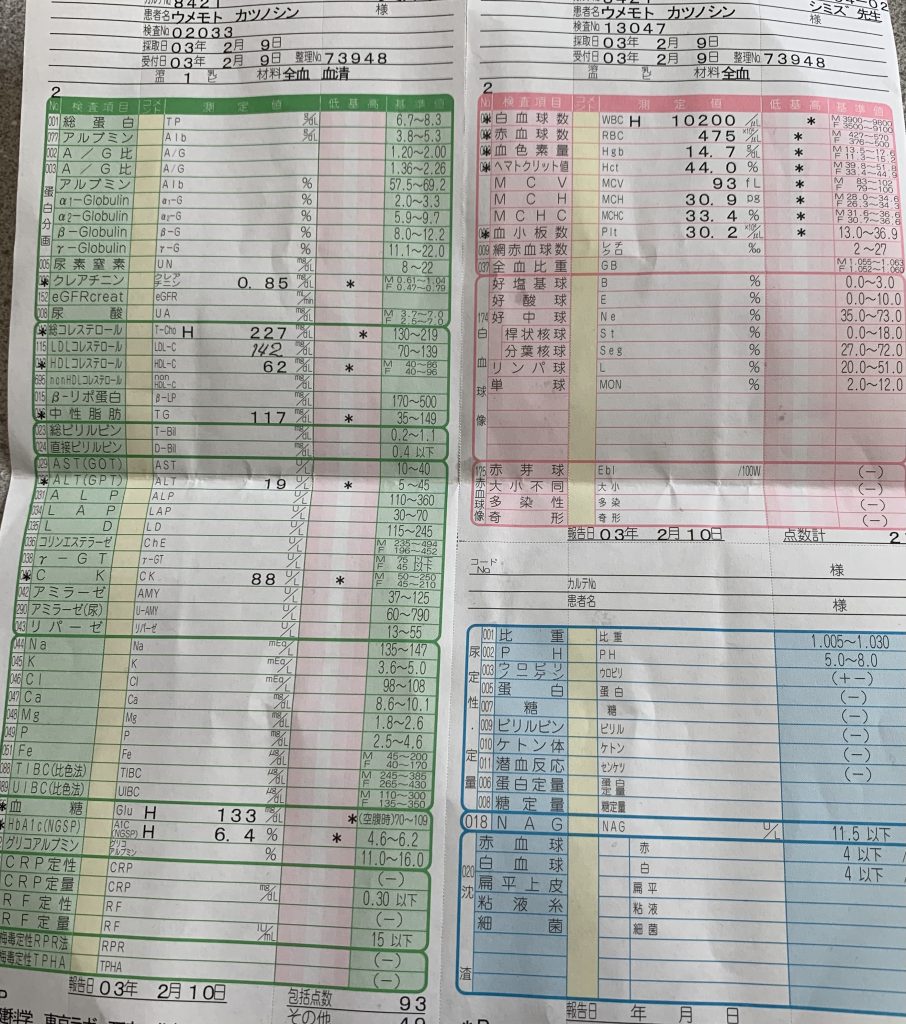 8421
様
患者名 ウメモト カツノシン
検査No 02033
採取日 03年 2月 9日
受付日 03年 2月 9日 整理No 73948
溶 1 乳ビ 材料 全血 血清
2
No. 検査項目 コメント 測定値 低 基 高 基準値
001 総蛋白 TP g/dL 6.7~8.3
077 アルブミン Alb g/dL 3.8~5.3
002 A/G比 A/G 1.20~2.00
003 A/G比 A/G 1.36~2.26
蛋白分画
アルブミン Alb % 57.5~69.2
α1-Globulin α1-G % 2.0~3.3
α2-Globulin α2-G % 5.9~9.7
β-Globulin β-G % 8.0~12.2
γ-Globulin γ-G % 11.1~22.0
005 尿素窒素 UN mg/dL 8~22
* クレアチニン クレアチニン 0.85 mg/dL * M 0.61~1.04 F 0.47~0.79
152 eGFRcreat eGFR mL/min
008 尿酸 UA mg/dL M 3.7~7.0 F 2.5~7.0
* 総コレステロール T-Cho H 227 mg/dL * 130~219
115 LDLコレステロール LDL-C 142 mg/dL 70~139
* HDLコレステロール HDL-C 62 mg/dL * M 40~86 F 40~96
695 nonHDLコレステロール non HDL-C mg/dL
015 β-リポ蛋白 β-LP mg/dL 170~500
* 中性脂肪 TG 117 mg/dL * 35~149
023 総ビリルビン T-Bil mg/dL 0.2~1.1
024 直接ビリルビン D-Bil mg/dL 0.4 以下
029 AST(GOT) AST U/L 10~40
* ALT(GPT) ALT 19 U/L * 5~45
031 ALP ALP U/L 110~360
034 LAP LAP U/L 30~70
035 LD LD U/L 115~245
036 コリンエステラーゼ ChE U/L M 235~494 F 196~452
038 γ-GT γ-GT U/L M 75 以下 F 45 以下
* CK CK 88 U/L * M 50~250 F 45~210
042 アミラーゼ AMY U/L 37~125
290 アミラーゼ(尿) U-AMY U/L 60~790
043 リパーゼ リパーゼ U/L 13~55
044 Na Na mEq/L 135~147
045 K K mEq/L 3.6~5.0
046 Cl Cl mEq/L 98~108
047 Ca Ca mg/dL 8.6~10.1
048 Mg Mg mg/dL 1.8~2.6
049 P P mg/dL 2.5~4.6
051 Fe Fe μg/dL M 45~200 F 40~170
088 TIBC(比色法) TIBC μg/dL M 245~385 F 265~430
089 UIBC(比色法) UIBC μg/dL M 110~300 F 135~350
* 血糖 Glu H 133 mg/dL * (空腹時)70~109
* HbA1c(NGSP) A1C (NGSP) H 6.4 % * 4.6~6.2
グリコアルブミン グリコアルブミン % 11.0~16.0
CRP定性 CRP (-)
CRP定量 CRP mg/dL 0.30 以下
RF定性 RF (-)
RF定量 RF IU/mL 15 以下
梅毒定性RPR法 RPR (-)
梅毒定性TPHA TPHA (-)
報告日 03年 2月10日 包括点数 93
その他
シミズ 先生
患者名 ウメモト カツノシン 様
検査No 13047
採取日 03年 2月 9日
受付日 03年 2月 9日 整理No 73948
溶 乳ビ 材料 全血
2
No. 検査項目 コメント 測定値 低 基 高 基準値
* 白血球数 WBC H 10200 /μL * M 3900~9800 F 3500~9100
* 赤血球数 RBC 475 ×10⁴/μL * M 427~570 F 376~500
* 血色素量 Hgb 14.7 g/dL *
* ヘマトクリット値 Hct 44.0 % *
MCV MCV 93 fL * M 83~102 F 79~100
MCH MCH 30.9 pg * M 28.0~34.6 F 26.3~34.3
MCHC MCHC 33.4 % * M 31.6~36.6 F 30.7~36.6
* 血小板数 Plt 30.2 ×10⁴/μL * 13.0~36.9
009 網赤血球数 レチクロ ‰ 2~27
037 全血比重 GB M 1.055~1.063 F 1.052~1.060
174 白血球像
好塩基球 B % 0.0~3.0
好酸球 E % 0.0~10.0
好中球 Ne % 35.0~73.0
桿状核球 St % 0.0~18.0
分葉核球 Seg % 27.0~72.0
リンパ球 L % 20.0~51.0
単球 MON % 2.0~12.0
175 赤血球像
赤芽球 Ebl /100W (-)
大小不同 大小 (-)
多染性 多染 (-)
奇形 奇形 (-)
報告日 03年 2月10日 点数計
コードNo 様
カルテNo
患者名 様
尿定性・定量
001 比重 比重 1.005~1.030
002 PH PH 5.0~8.0
003 ウロビリノーゲン ウロビリ (+-)
005 蛋白 蛋白 (-)
007 糖 糖 (-)
009 ビリルビン ビリル (-)
010 ケトン体 ケトン (-)
011 潜血反応 センケツ (-)
006 蛋白定量 蛋白定量
008 糖定量 糖定量
018 NAG NAG U/L 11.5 以下
020 沈渣
赤血球 赤 4 以下
白血球 白 4 以下
扁平上皮 扁平
粘液糸 粘液
細菌 細菌
報告日 年 月 日